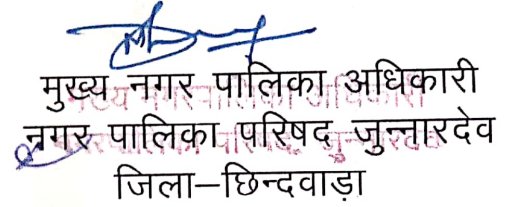 मुख्य नगर पालिका अधिकारी
नगर पालिका परिषद जुन्नारदेव
जिला–छिन्दवाड़ा